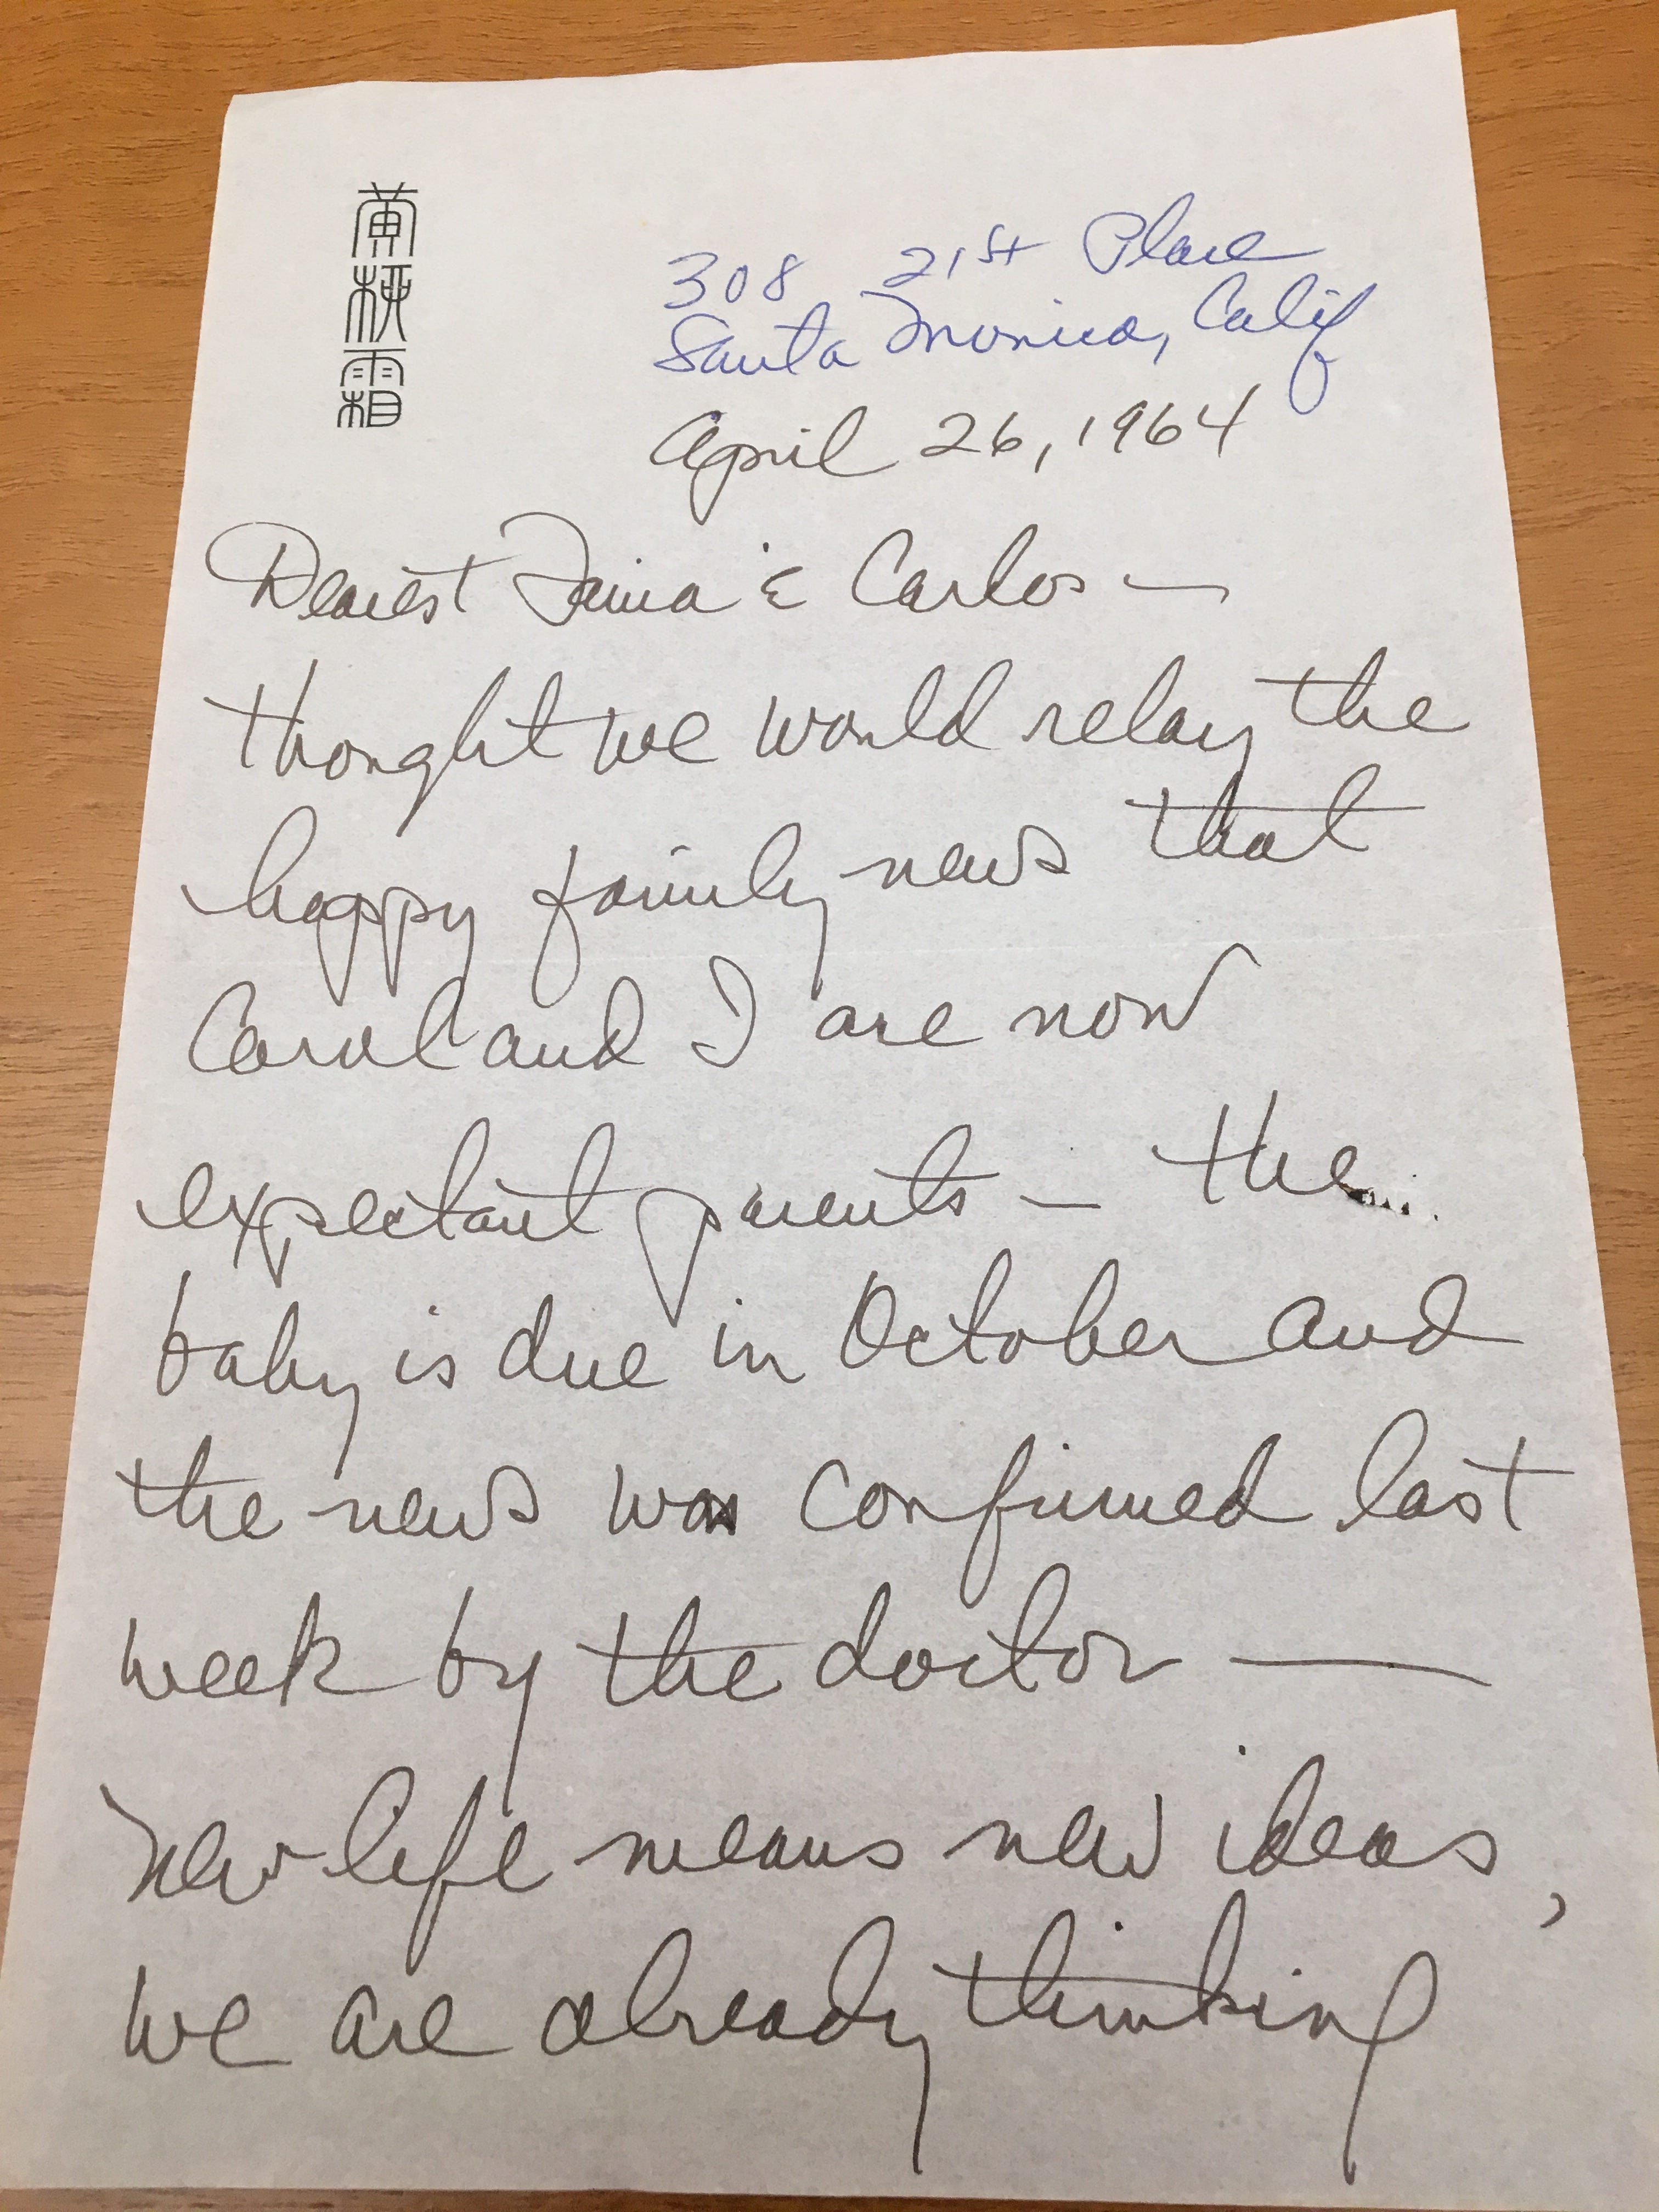 黃柳霜
308 21st Place
Santa Monica, Calif
April 26, 1964
Dearest & Carlos —
thought we would relay the
happy family news that
Carol and I are now
expectant parents — the
baby is due in October and
the news was confirmed last
week by the doctor —
New life means new ideas,
we are already thinking